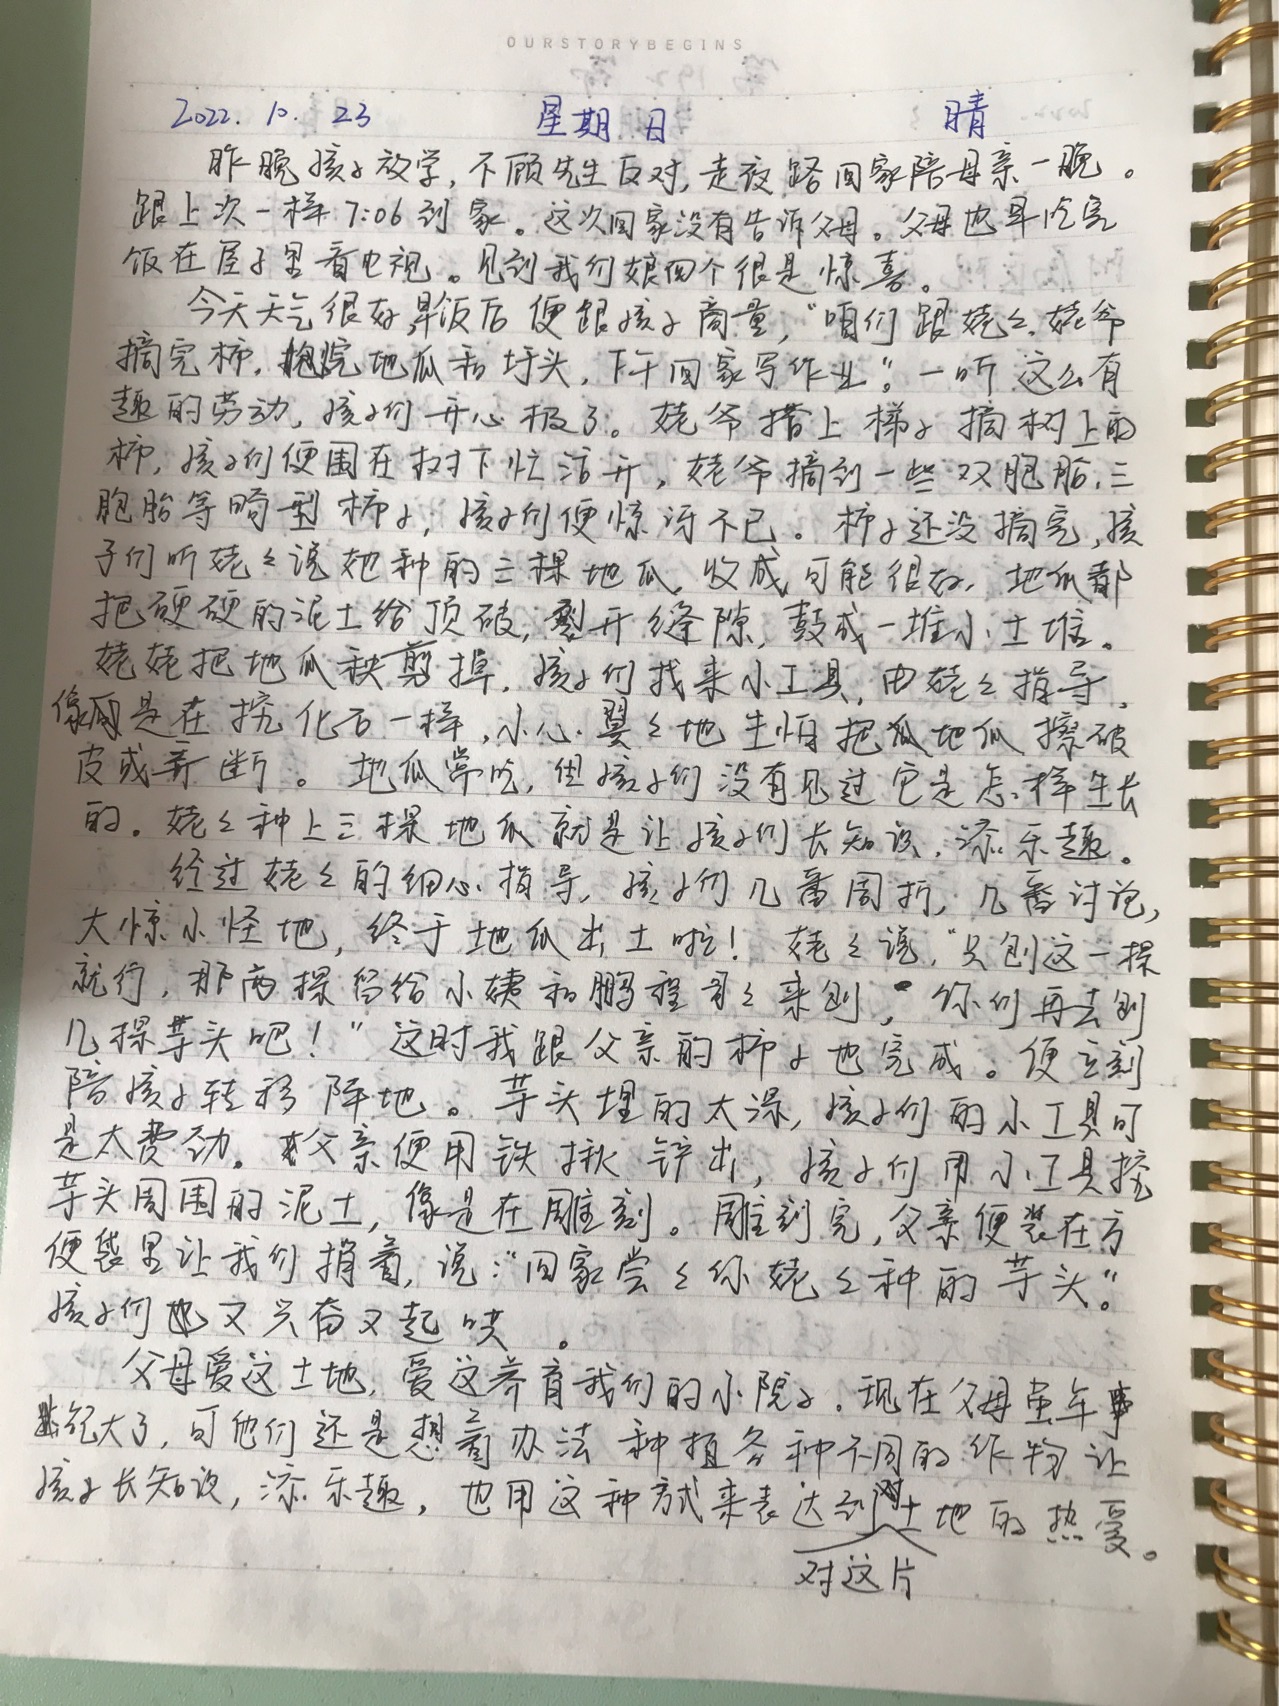 OURSTORYBEGINS
2022.10.23 星期日 晴
昨晚孩子放学,不顾先生反对,走夜路回家陪母亲一晚。
跟上次一样7:06到家。这次回家没有告诉父母。父母也早吃完
饭在屋子里看电视。见到我们娘四个很是惊喜。
今天天气很好,早饭后便跟孩子商量,“咱们跟姥姥、姥爷
摘完柿,挖完地瓜和芋头,下午回家写作业”。一听这么有
趣的劳动,孩子们开心极了。姥爷搭上梯子摘树上的
柿,孩子们便围在树下忙活开,姥爷摘到一些双胞胎、三
胞胎等畸型柿子,孩子们便惊讶不已。柿子还没摘完,孩
子们听姥姥说她种的三棵地瓜,收成可能很好,地瓜都
把硬硬的泥土给顶破,裂开缝隙,鼓成一堆小土堆。
姥姥把地瓜秧剪掉,孩子们找来小工具,由姥姥指导,
像是在挖化石一样,小心翼翼地生怕把地瓜擦破
皮或弄断。地瓜常吃,但孩子们没有见过它是怎样生长
的。姥姥种上三棵地瓜就是让孩子们长知识,添乐趣。
经过姥姥的细心指导,孩子们几番周折,几番讨论,
大惊小怪地,终于地瓜出土啦!姥姥说,“只刨这一棵
就行,那两棵留给小姨和鹏程哥哥来刨,你们再去刨
几棵芋头吧!”这时我跟父亲的柿子也完成。便立刻
陪孩子转移阵地。芋头埋的太深,孩子们的小工具可
是太费劲。父亲便用铁揪铲出,孩子们用小工具挖
芋头周围的泥土,像是在雕刻。雕刻完,父亲便装在方
便袋里让我们捎着,说:“回家尝尝你姥姥种的芋头”。
孩子们又兴奋又起哄。
父母爱这土地,爱这养育我们的小院子。现在父母虽年事
纪大了,可他们还是想着办法种植各种不同的作物让
孩子长知识,添乐趣,也用这种方式来表达到土地的热爱。
对这片